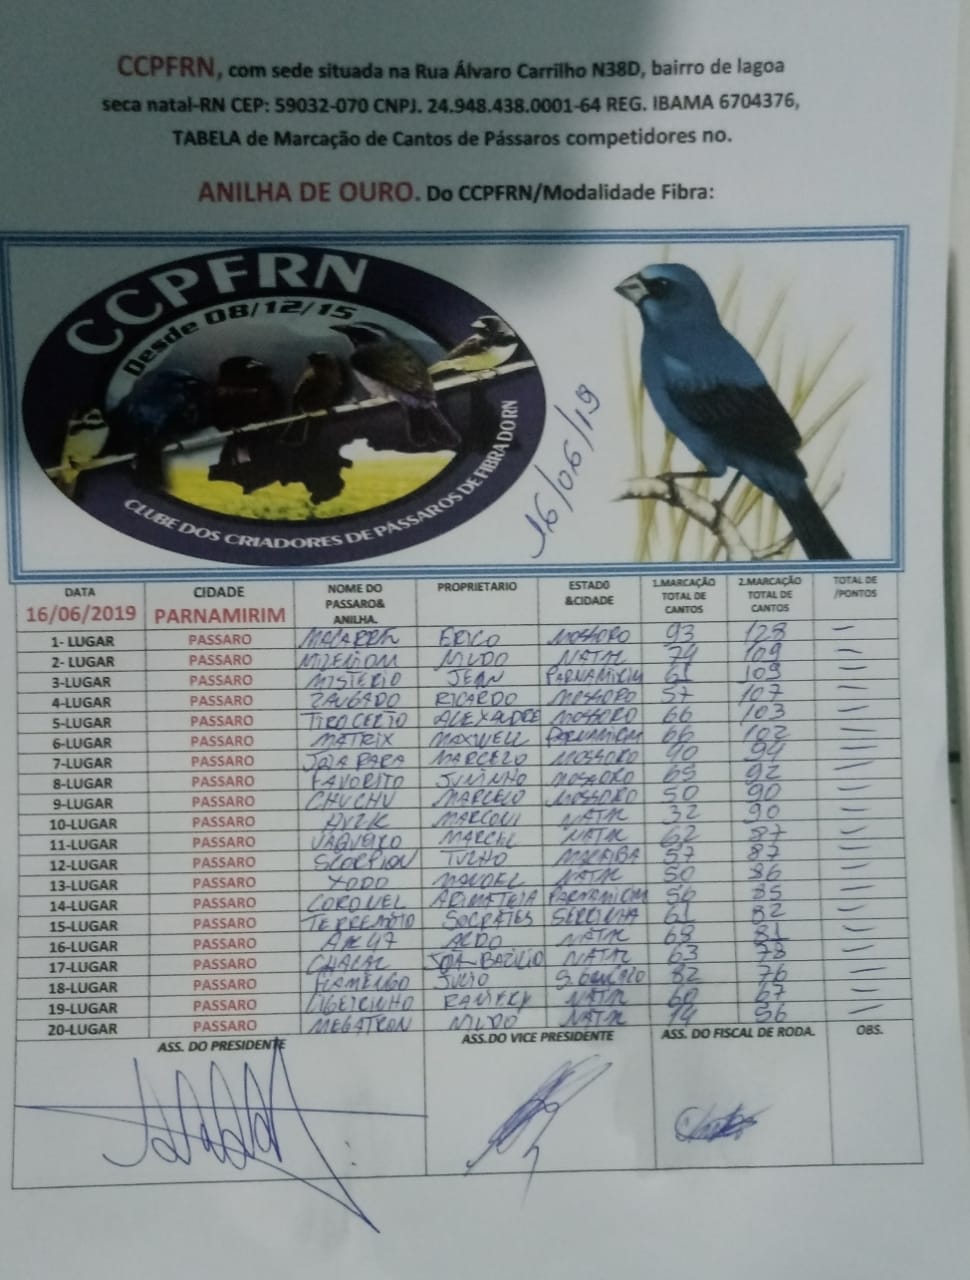 CCPFRN, com sede situada na Rua Álvaro Carrilho N38D, bairro de lagoa
seca natal-RN CEP: 59032-070 CNPJ. 24.948.438.0001-64 REG. IBAMA 6704376,
TABELA de Marcação de Cantos de Pássaros competidores no.
ANILHA DE OURO. Do CCPFRN/Modalidade Fibra:
CCPFRN
Desde 08/12/15
CLUBE DOS CRIADORES DE PÁSSAROS DE FIBRA DO RN
16/06/19
DATA CIDADE NOME DO PASSARO& ANILHA. PROPRIETARIO ESTADO &CIDADE 1.MARCAÇÃO TOTAL DE CANTOS 2.MARCAÇÃO TOTAL DE CANTOS TOTAL DE /PONTOS
16/06/2019 PARNAMIRIM
1- LUGAR PASSARO ERICO MOSSORO 93 128 —
2- LUGAR PASSARO NILDO NATAL 74 109 —
3-LUGAR PASSARO MISTERIO JEAN PARNAMIRIM 61 109 —
4-LUGAR PASSARO ZANGADO RICARDO MOSSORO 57 107 —
5-LUGAR PASSARO TIRO CERTO ALEXANDRE MOSSORO 66 103 —
6-LUGAR PASSARO MATRIX MAXWELL PARNAMIRIM 66 102 —
7-LUGAR PASSARO JOIA RARA MARCELO MOSSORO 40 94 —
8-LUGAR PASSARO FAVORITO JUNINHO MOSSORO 65 92 —
9-LUGAR PASSARO CHUCHU MARCELO MOSSORO 50 90 —
10-LUGAR PASSARO MARCONI NATAL 32 90 —
11-LUGAR PASSARO VAQUEIRO MARCEL NATAL 62 87 —
12-LUGAR PASSARO SCORPION TULHO MACAIBA 57 87 —
13-LUGAR PASSARO XODO MANOEL NATAL 50 86 —
14-LUGAR PASSARO CORONEL ARIMATEIA PARNAMIRIM 56 85 —
15-LUGAR PASSARO TERREMOTO SOCRATES SERRINHA 61 82 —
16-LUGAR PASSARO AK 47 ALDO NATAL 68 81 —
17-LUGAR PASSARO CHACAL JOÃO BAZILIO NATAL 63 78 —
18-LUGAR PASSARO FLAMENGO JULIO S. GONÇALO 82 76 —
19-LUGAR PASSARO LIGEIRINHO NATAL 60 67 —
20-LUGAR PASSARO MEGATRON NILDO NATAL 14 56 —
ASS. DO PRESIDENTE ASS.DO VICE PRESIDENTE ASS. DO FISCAL DE RODA. OBS.